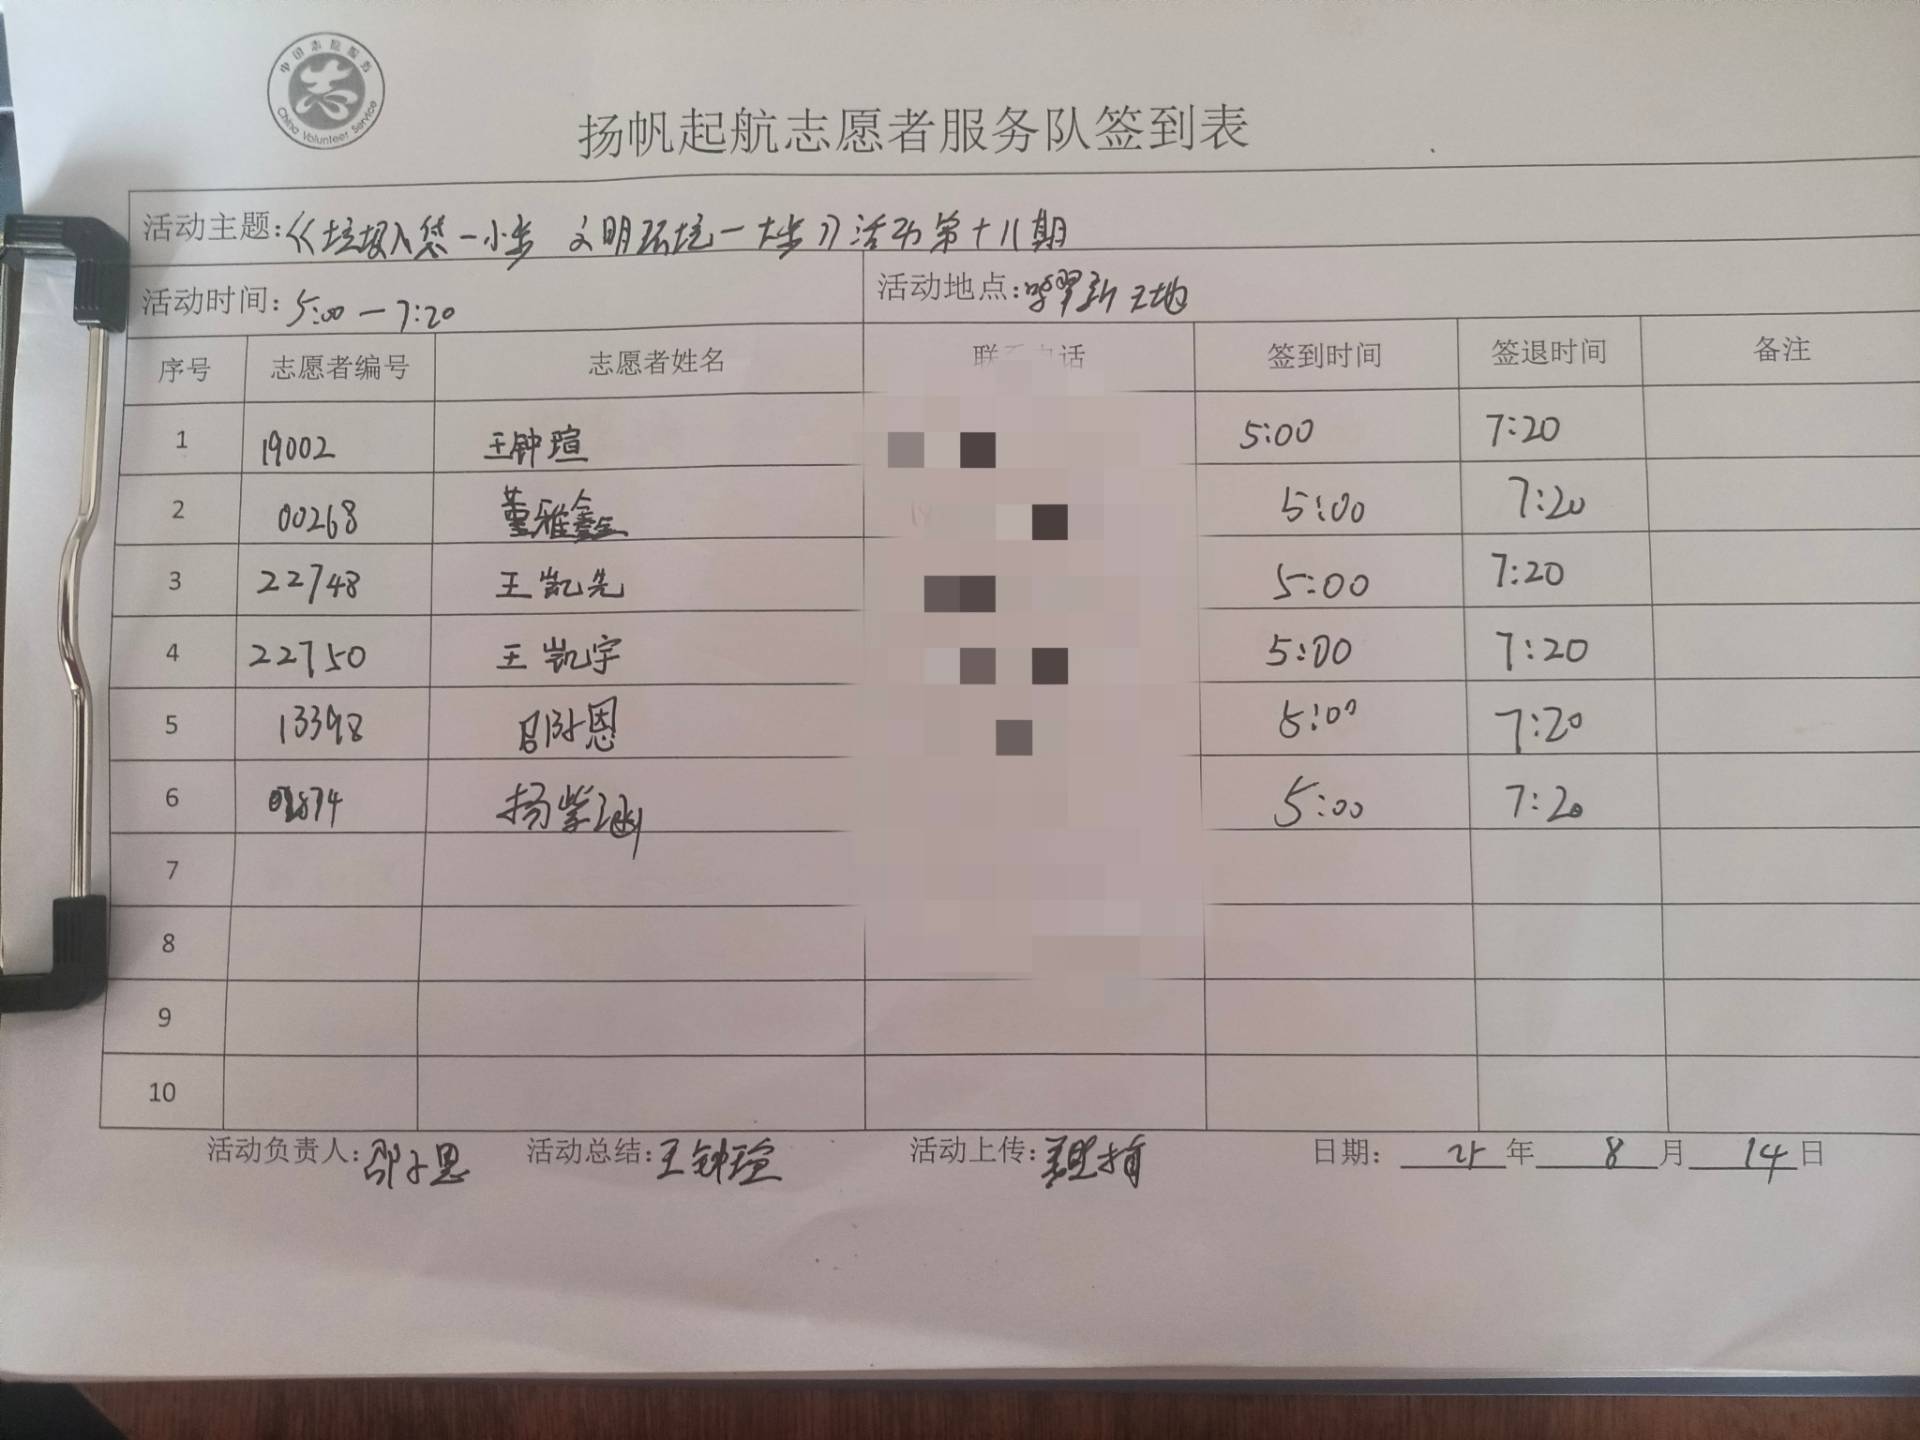 中国志愿服务
China Volunteer Service
扬帆起航志愿者服务队签到表
活动主题:《垃圾入袋一小步 文明环境一大步》活动第十八期
活动时间:5:00—7:20 活动地点:翠新天地
序号 志愿者编号 志愿者姓名 签到时间 签退时间 备注
1 19002 王钟瑄 5:00 7:20
2 00268 董雅鑫 5:00 7:20
3 22748 王凯先 5:00 7:20
4 22750 王凯宇 5:00 7:20
5 13398 恩 5:00 7:20
6 杨紫涵 5:00 7:20
7
8
9
10
活动负责人: 活动总结:王钟瑄 活动上传: 日期: 年 8 月 14 日